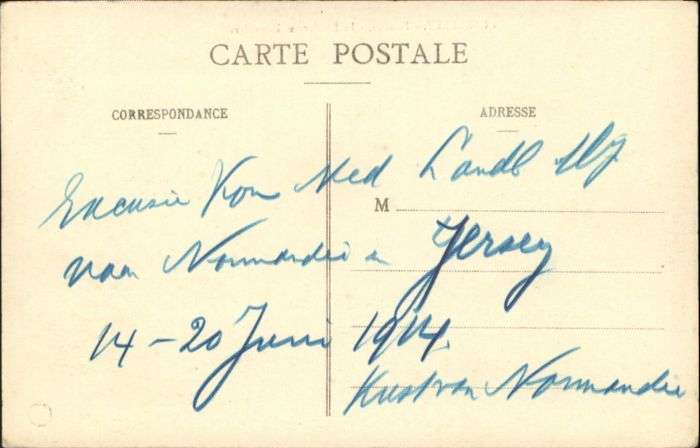 CARTE POSTALE
CORRESPONDANCE
ADRESSE
M
Excursie Kon Ned Landb Mij
naar Normandie en Jersey
14-20 Juni 1914.
Kust van Normandie